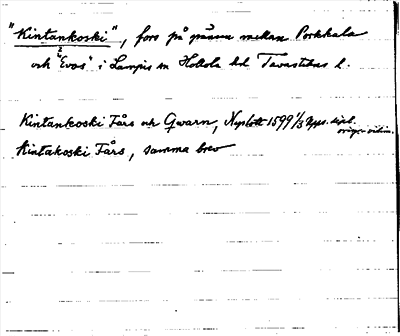 "Kintankoski", fors på gränsen mellan Porkkala
och "Evos" i Lampis sn Hollola hd Tavastehus l.
Kintankoski Fårs och Qwarn, 1599 1/3
Kintakoski Fårs, samma brev